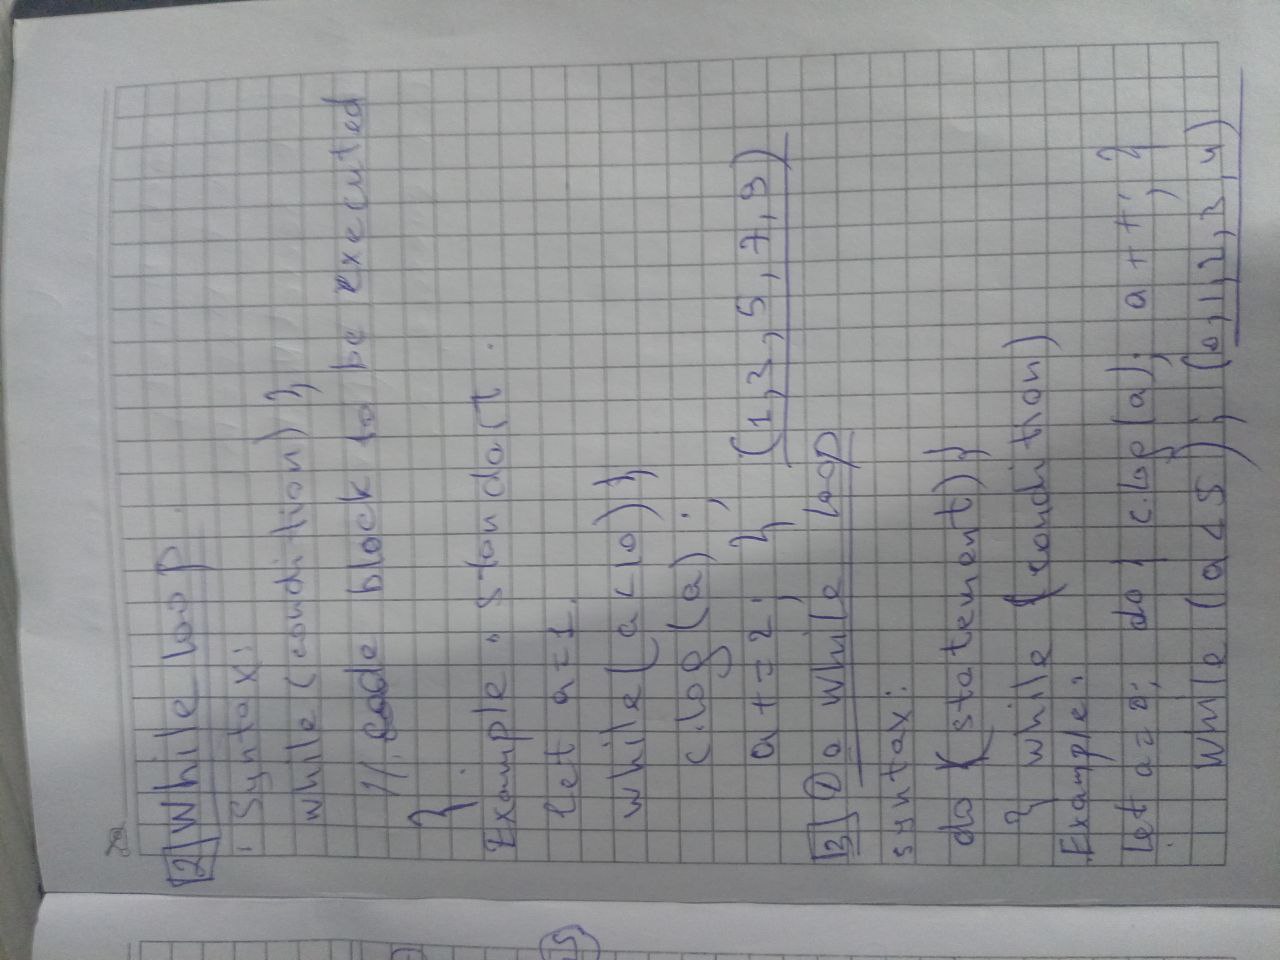 2 While loop
Syntax:
while (condition) {
// code block to be executed
}.
Example: standart.
let a=1.
while (a<10) {
c.log(a);
a+=2; } (1,3,5,7,9)
3 Do while loop
syntax:
do {statement}
} while {condition)
Example:
let a=0; do { c.log(a); a++; }
while (a<5); (0,1,2,3,4)